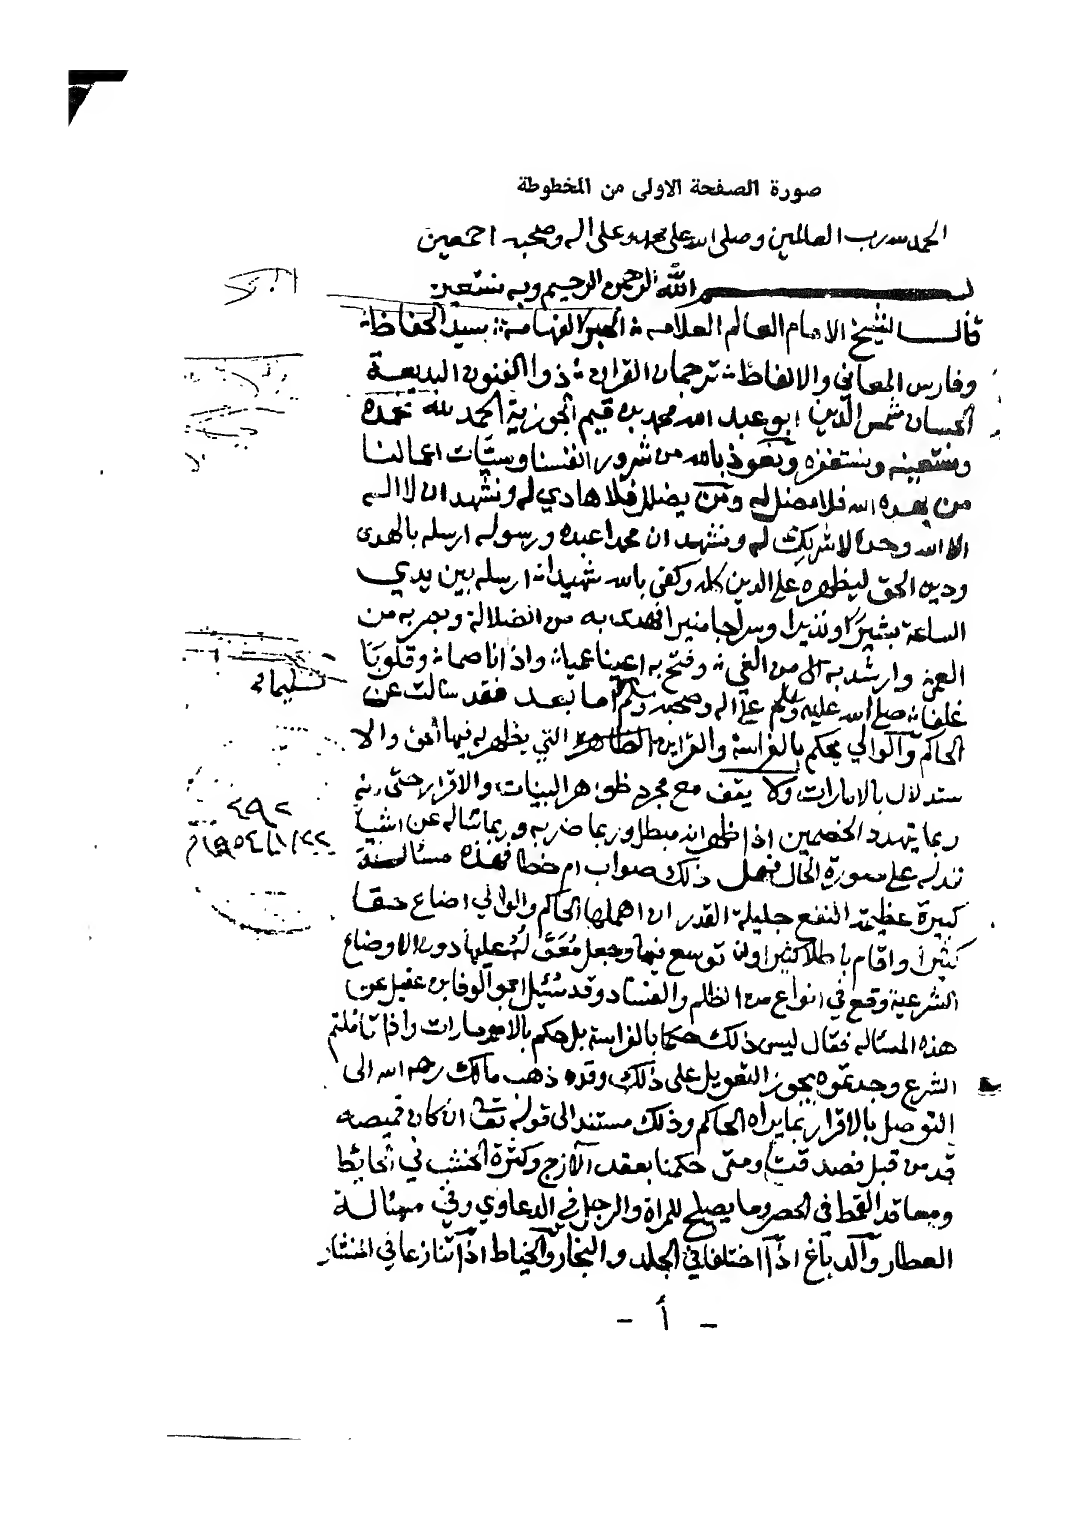 صورة الصفحة الاولى من المخطوطة
الحمد لله رب العالمين وصلى الله على محمد وعلى اله وصحبه اجمعين
بسم الله الرحمن الرحيم وبه نستعين
قال الشيخ الامام العالم العلامة الحبر الفهامة سيد الحفاظ
وفارس المعاني والالفاظ ترجمان القران ذو الفنون البديعة
الحسان شمس الدين ابو عبد الله محمد بن قيم الجوزية الحمد لله نحمده
ونستعينه ونستغفره ونعوذ بالله من شرور انفسنا وسيئات اعمالنا
من يهده الله فلا مضل له ومن يضلل فلا هادي له ونشهد ان لا اله
الا الله وحده لا شريك له ونشهد ان محمدا عبده ورسوله ارسله بالهدى
ودين الحق ليظهره على الدين كله وكفى بالله شهيدا ارسله بين يدي
الساعة بشيرا ونذيرا وسراجا منيرا فهدى به من الضلالة وبصر به من
العمى وارشد به من الغي وفتح به اعينا عميا واذانا صما وقلوبا
غلفا صلى الله عليه وسلم وعلى اله وصحبه وسلم اما بعد فقد سالت عن
الحاكم والوالي يحكم بالفراسة والقراين الظاهره التي يظهر له فيها الحق والا
ستدلال بالامارات ولا يقف مع مجرد ظواهر البينات والاقرار حتى انه
ربما يتهدد الخصمين اذا ظهر انه مبطل وربما ضربه وربما ساله عن اشيا
تدله على صورة الحال فهل ذلك صواب ام خطا فهذه مسالة
كبيرة عظيمة النفع جليلة القدر ان اهملها الحاكم والوالي اضاع حقا
كثيرا واقام باطلا كثيرا وان توسع فيها وجعل معوله عليها دون الاوضاع
الشرعية وقع في انواع من الظلم والفساد وقد سئل ابو الوفا بن عقيل عن
هذه المساله فقال ليس ذلك حكما بالفراسة بل حكم بالامارات واذا تاملتم
الشرع وجدتموه يجوز التعويل على ذلك وقد ذهب مالك رحمه الله الى
التوصل بالاقرار بما يراه الحاكم وذلك مستند الى قوله تعا ان كان قميصه
قد من قبل فصدقت ومتى حكمنا بعقد الازج وكثرة الخشب في الحائط
ومعاقد القمط في الخص وما يصلح للمراة والرجل في الدعاوي وفي مسالة
العطار والدباغ اذا اختلفا في الجلد والنجار والخياط اذا تنازعا في المنشار
سليمانه
٢٩٢
٢٢/١/١٩٥٤م
- أ -